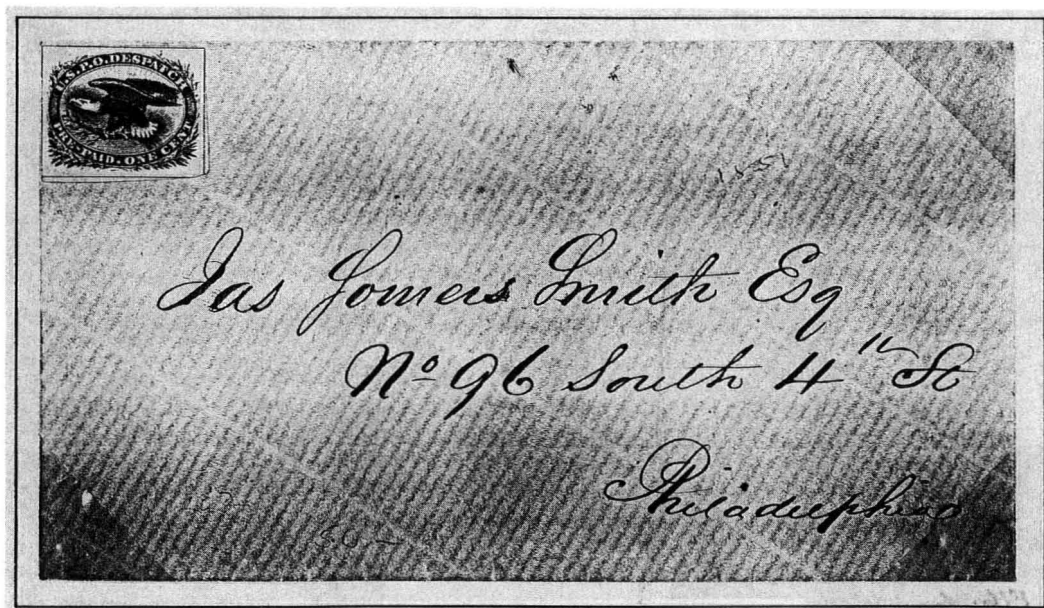 U.S.P.O. DESPATCH
PRE-PAID. ONE CENT
1851
Jas Somers Smith Esq
No 96 South 4th St
Philadelphia